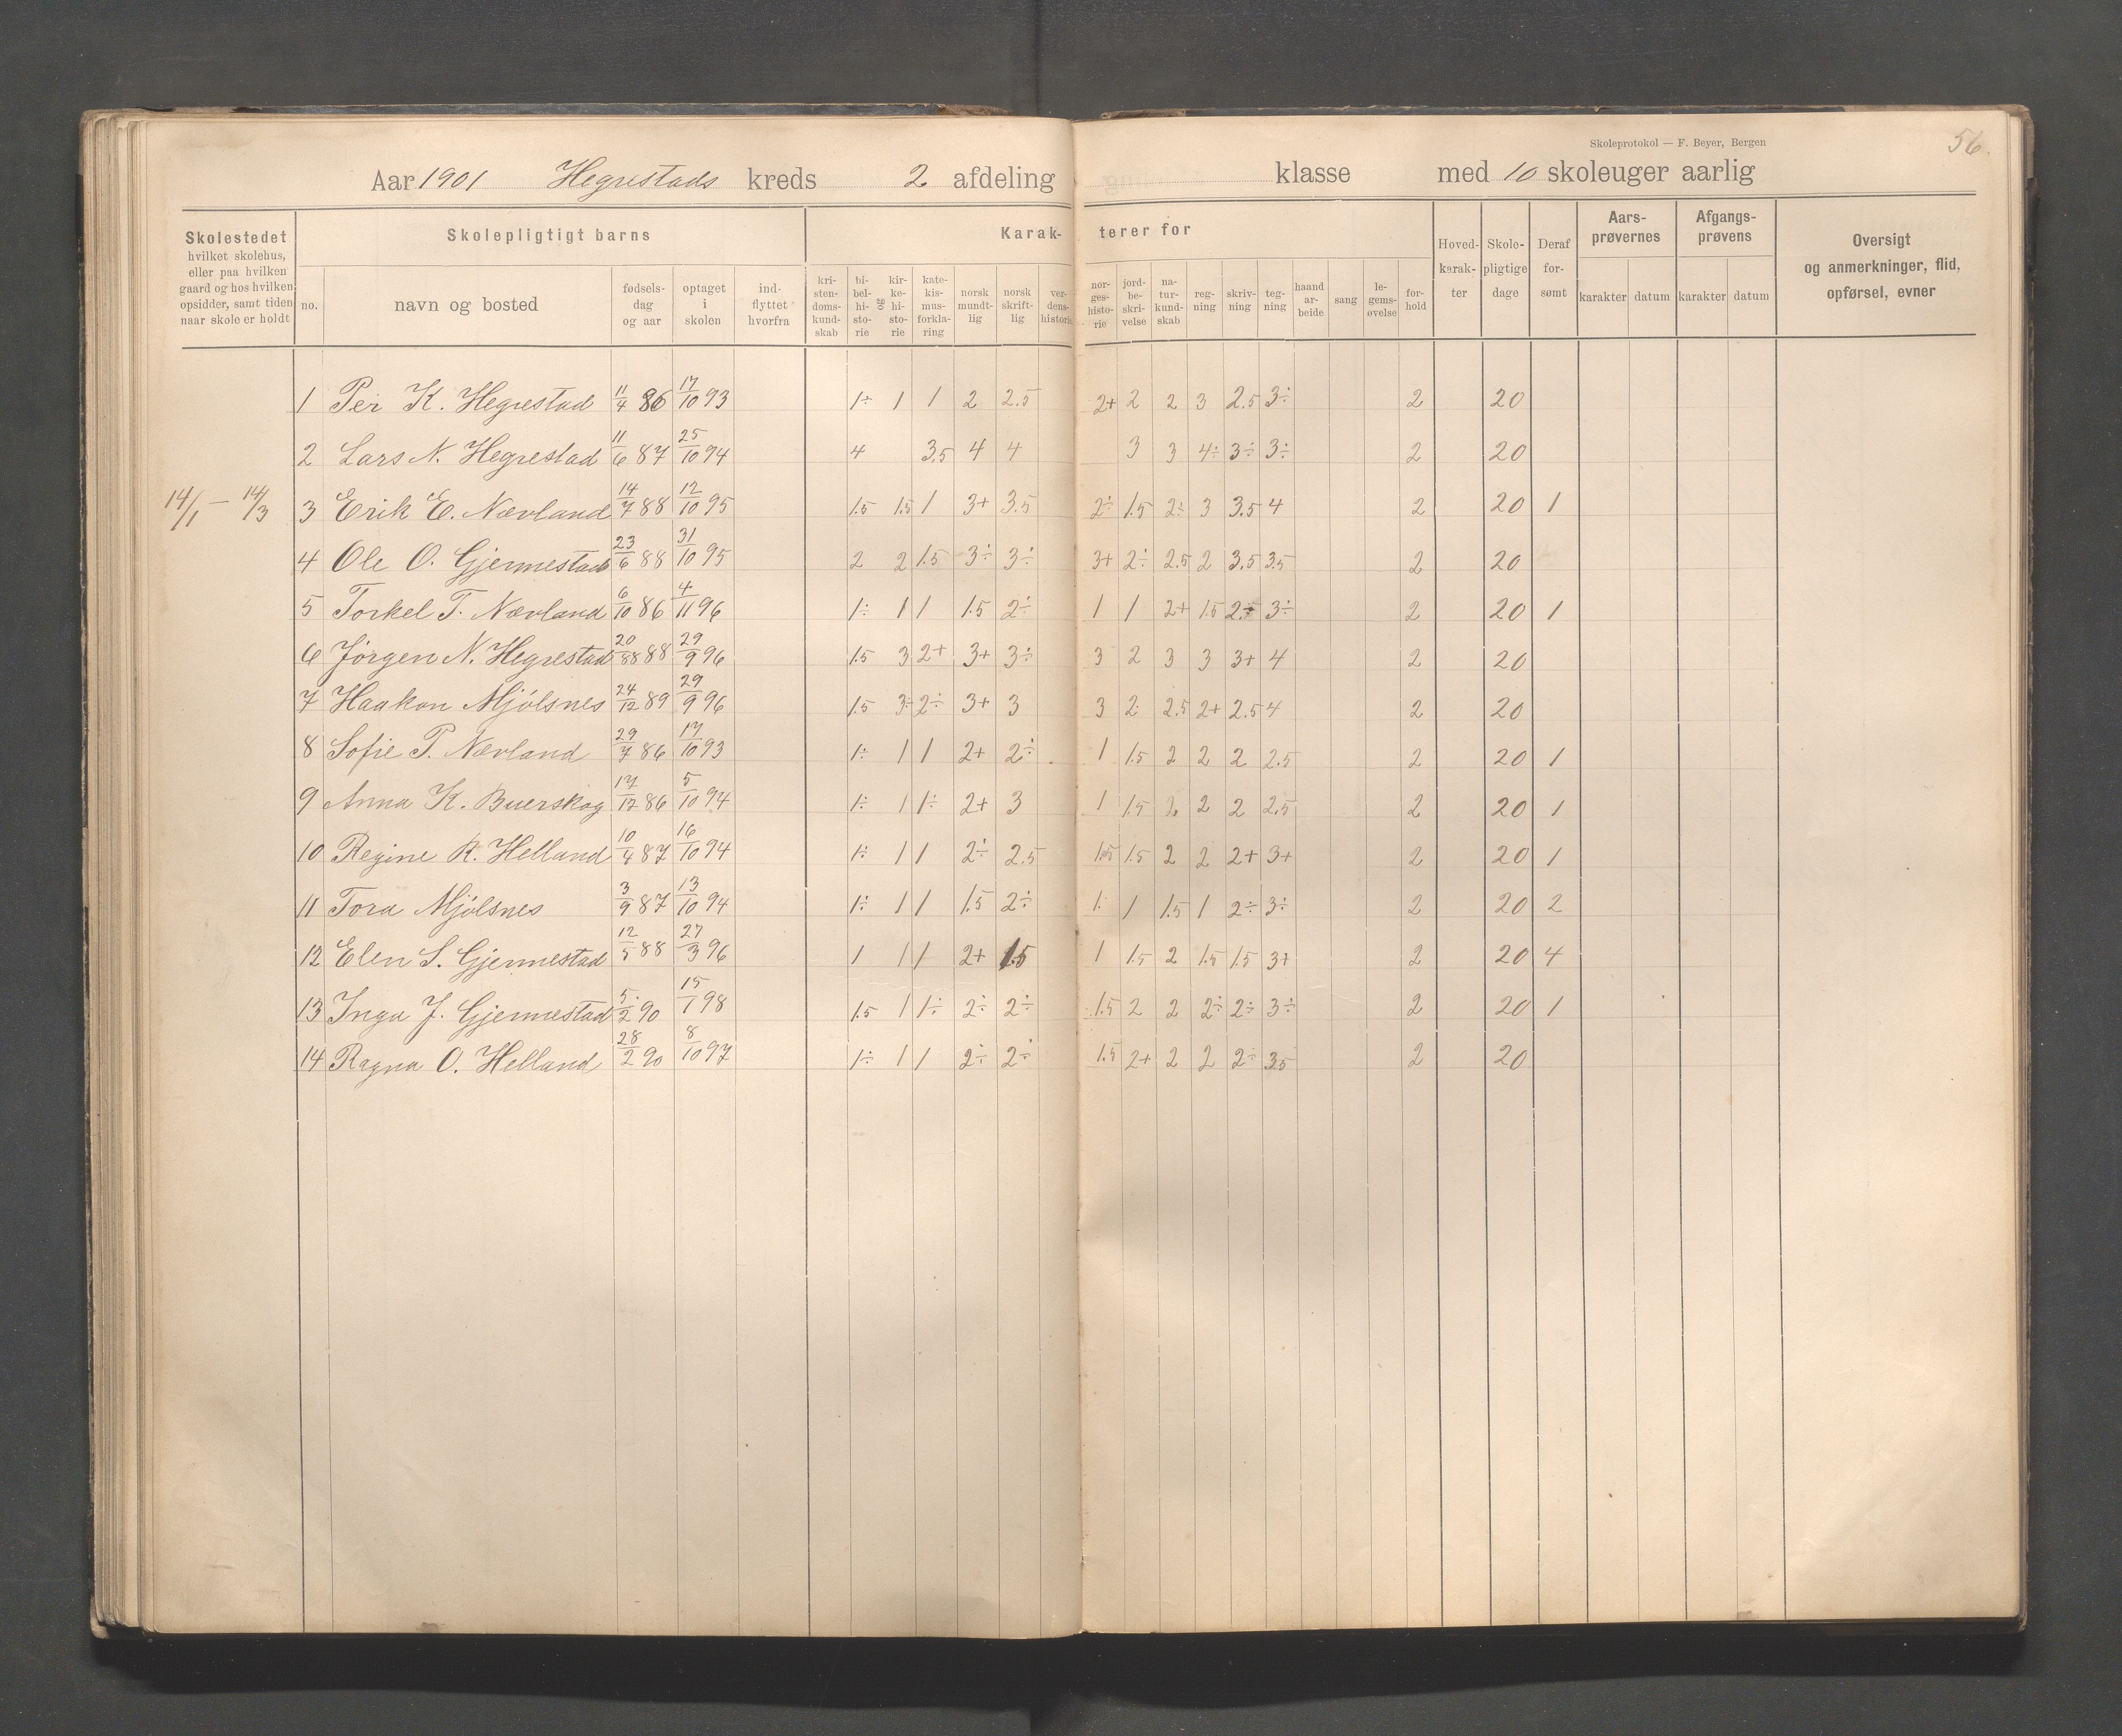 Skoleprotokol — F. Beyer, Bergen
56.
Aar 1901 Hegrestads kreds 2 afdeling klasse med 10 skoleuger aarlig
Skolestedet hvilket skolehus, eller paa hvilken gaard og hos hvilken opsidder, samt tiden naar skole er holdt
Skolepligtigt barns
no. navn og bosted fødsels-dag og aar optaget i skolen ind-flyttet hvorfra
Karak-terer for
kri-sten-doms-kund-skab bi-bel-hi-sto-rie og kir-ke-hi-sto-rie kate-kis-mus-forkla-ring norsk mundt-lig norsk skrift-lig ver-dens-historie nor-ges-histo-rie jord-be-skri-velse na-tur-kund-skab reg-ning skriv-ning teg-ning haand ar-beide sang le-gems-øvelse for-hold
Hoved-karak-ter Skole-pligtige dage Deraf for-sømt
Aars-prøvernes karakter datum
Afgangs-prøvens karakter datum
Oversigt og anmerkninger, flid, opførsel, evner
1 Per K. Hegrestad 11/4 86 17/10 93 1÷ 1 1 2 2.5 2+ 2 2 3 2.5 3÷ 2 20
2 Lars N. Hegrestad 11/6 87 25/10 94 4 3.5 4 4 3 3 4÷ 3÷ 3÷ 2 20
14/1 — 14/3 3 Erik E. Nævland 14/7 88 12/10 95 1.5 1.5 1 3+ 3.5 2÷ 1.5 2÷ 3 3.5 4 2 20 1
4 Ole O. Gjermestad 23/6 88 31/10 95 2 2 1.5 3÷ 3÷ 3+ 2÷ 2.5 2 3.5 3.5 2 20
5 Torkel T. Nævland 6/10 86 4/11 96 1÷ 1 1 1.5 2÷ 1 1 2+ 1.5 2÷ 3÷ 2 20 1
6 Jörgen N. Hegrestad 20/88 88 29/9 96 1.5 3 2+ 3+ 3÷ 3 2 3 3 3+ 4 2 20
7 Haakon Mjölsnes 24/12 89 29/9 96 1.5 3÷ 2÷ 3+ 3 3 2 2.5 2+ 2.5 4 2 20
8 Sofie T. Nævland 29/7 86 17/10 93 1÷ 1 1 2+ 2÷ 1 1.5 2 2 2 2.5 2 20 1
9 Anna K. Buerskog 17/12 86 5/10 94 1÷ 1 1÷ 2+ 3 1 1.5 2 2 2 2.5 2 20 1
10 Regine R. Helland 10/4 87 16/10 94 1÷ 1 1 2÷ 2.5 1.5 1.5 2 2 2+ 3+ 2 20 1
11 Tora Mjölsnes 3/9 87 13/10 94 1÷ 1 1 1.5 2÷ 1 1 1.5 1 2÷ 3÷ 2 20 2
12 Elen S. Gjermestad 12/5 88 27/3 96 1 1 1 2+ 1.5 1 1.5 2 1.5 1.5 3+ 2 20 4
13 Inga J. Gjermestad 5/2 90 15/1 98 1.5 1 1÷ 2÷ 2÷ 1.5 2 2 2÷ 2÷ 3÷ 2 20 1
14 Ragna O. Helland 28/2 90 8/10 97 1÷ 1 1 2÷ 2÷ 1.5 2+ 2 2 2÷ 3.5 2 20